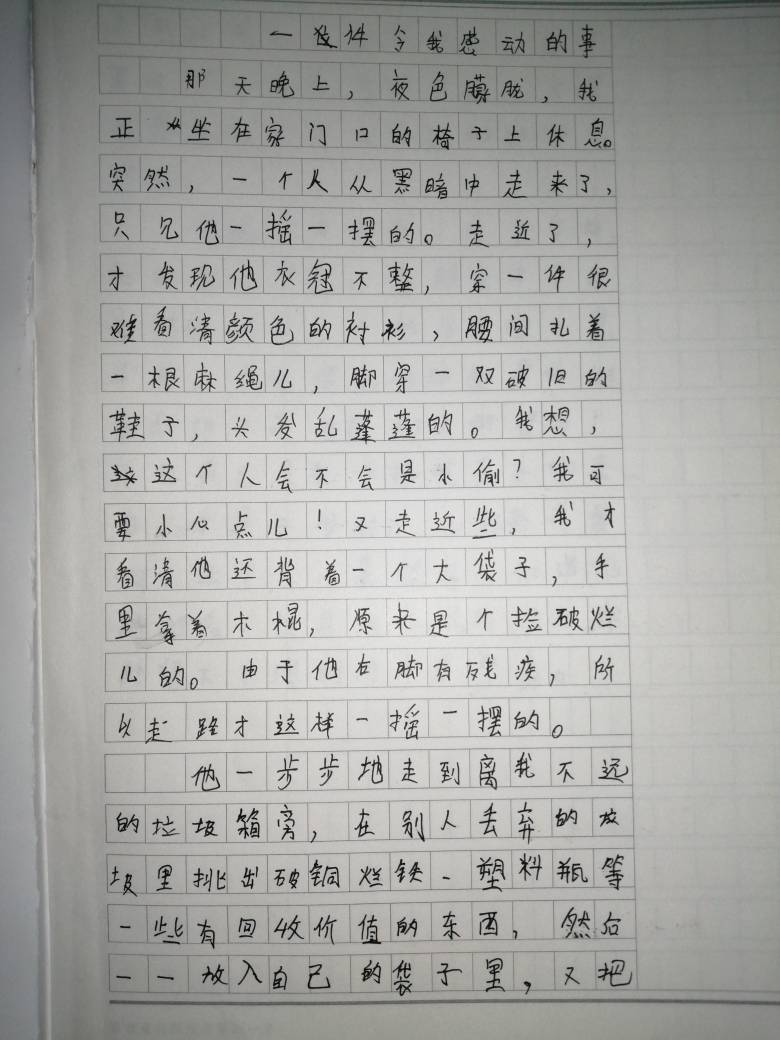 一件令我感动的事
那天晚上，夜色朦胧，我
正坐在家门口的椅子上休息。
突然，一个人从黑暗中走来了，
只见他一摇一摆的。走近了，
才发现他衣冠不整，穿一件很
难看清颜色的衬衫，腰间扎着
一根麻绳儿，脚穿一双破旧的
鞋子，头发乱蓬蓬的。我想，
这个人会不会是小偷？我可
要小心点儿！又走近些，我才
看清他还背着一个大袋子，手
里拿着木棍，原来是个捡破烂
儿的。由于他右脚有残疾，所
以走路才这样一摇一摆的。
他一步步地走到离我不远
的垃圾箱旁，在别人丢弃的放
圾里挑出破铜烂铁、塑料瓶等
一些有回收价值的东西，然后
一一放入自己的袋子里，又把